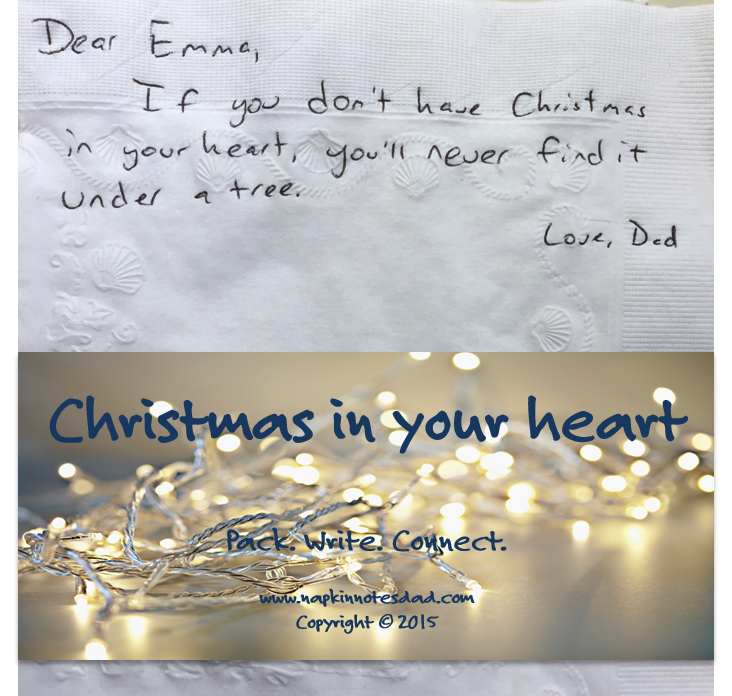 Dear Emma,
If you don't have Christmas
in your heart, you'll never find it
under a tree.
Love, Dad
Christmas in your heart
Pack. Write. Connect.
www.napkinnotesdad.com
Copyright © 2015